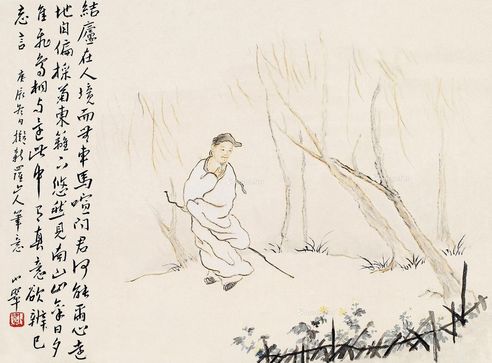 結廬在人境而無車馬喧問君何能爾心遠
地自偏採菊東籬下悠然見南山山氣日夕
佳飛鳥相与還此中有真意欲辨已
忘言 庚辰冬月擬新羅山人筆意
小翠